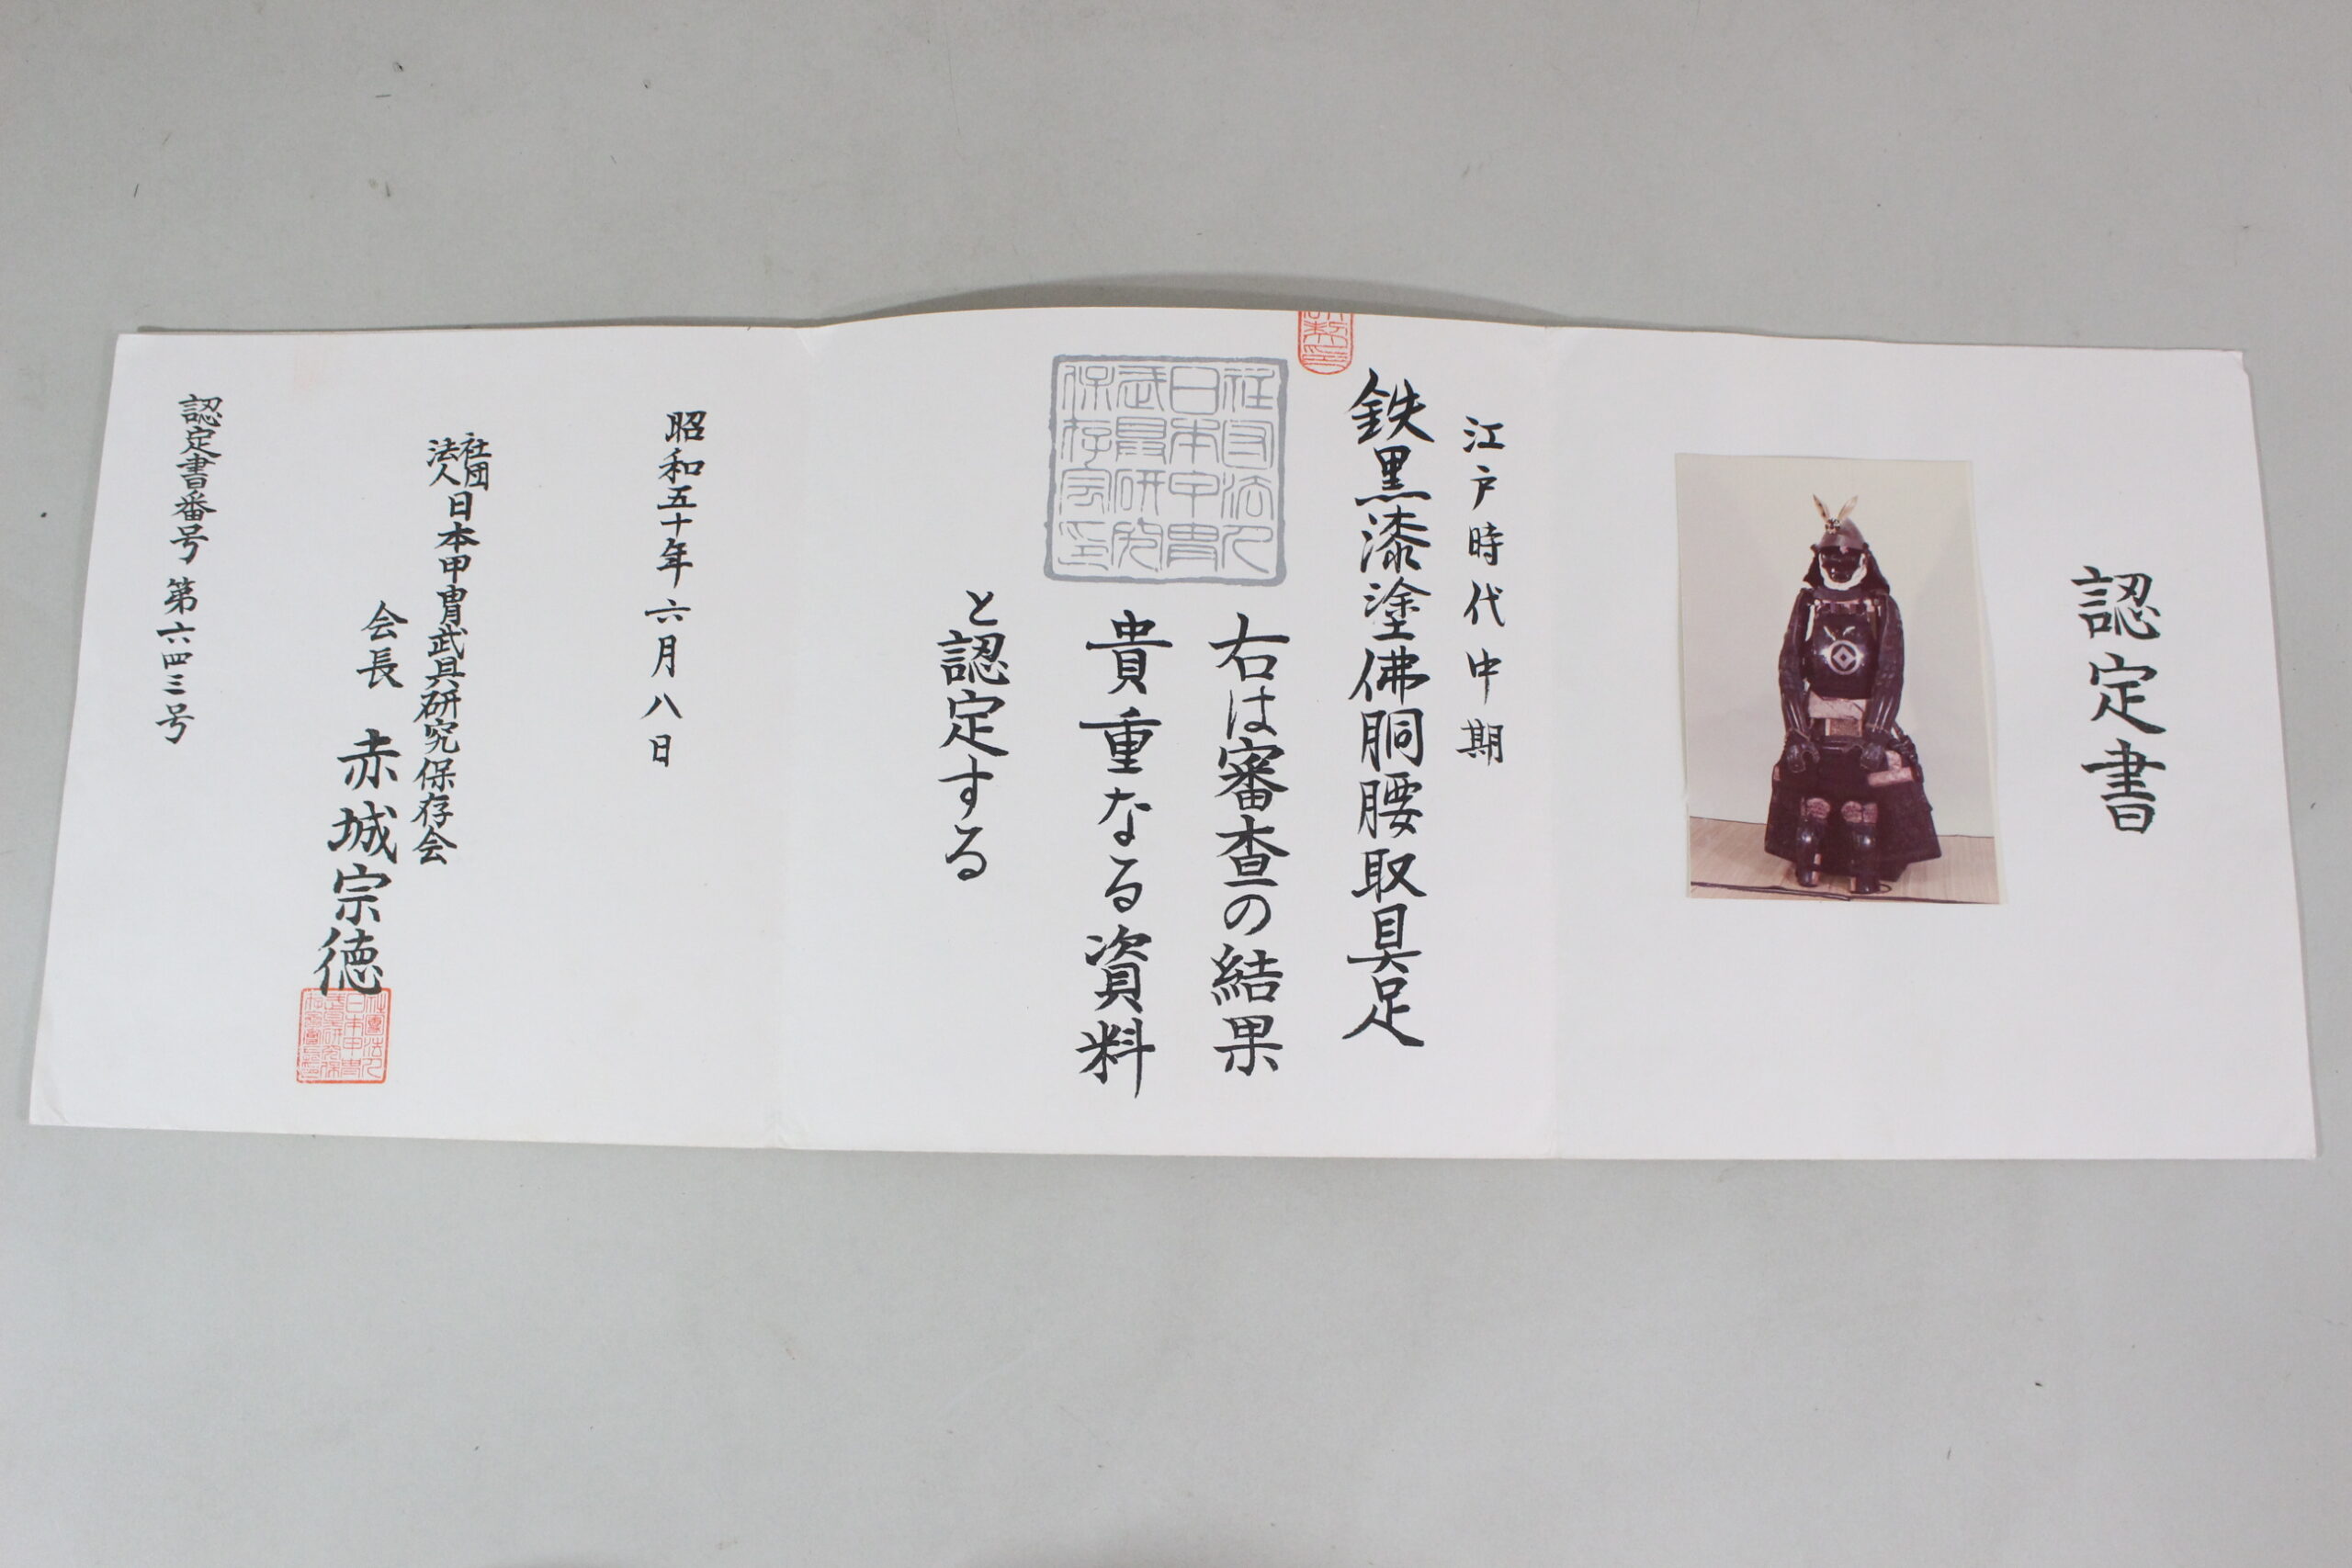 認定書
江戸時代中期
鉄黒漆塗佛胴腰取具足
右は審査の結果
貴重なる資料
と認定する
社団法人
日本甲冑
武具研究
保存会印
昭和五十年六月八日
社団法人日本甲冑武具研究保存会
会長 赤城宗徳
認定書番号 第六四三号